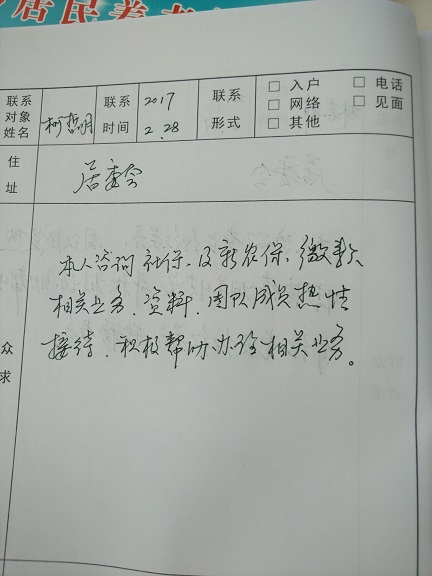 居民养老
联系对象姓名 柯哲明 联系时间 2017 2.28 联系形式 □ 入户 □ 电话 □ 网络 □ 见面 □ 其他
住址 居委会
众求
本人咨询社保、及新农保、缴款
相关业务、资料、团队成员热性
接待、积极帮助办理相关业务。